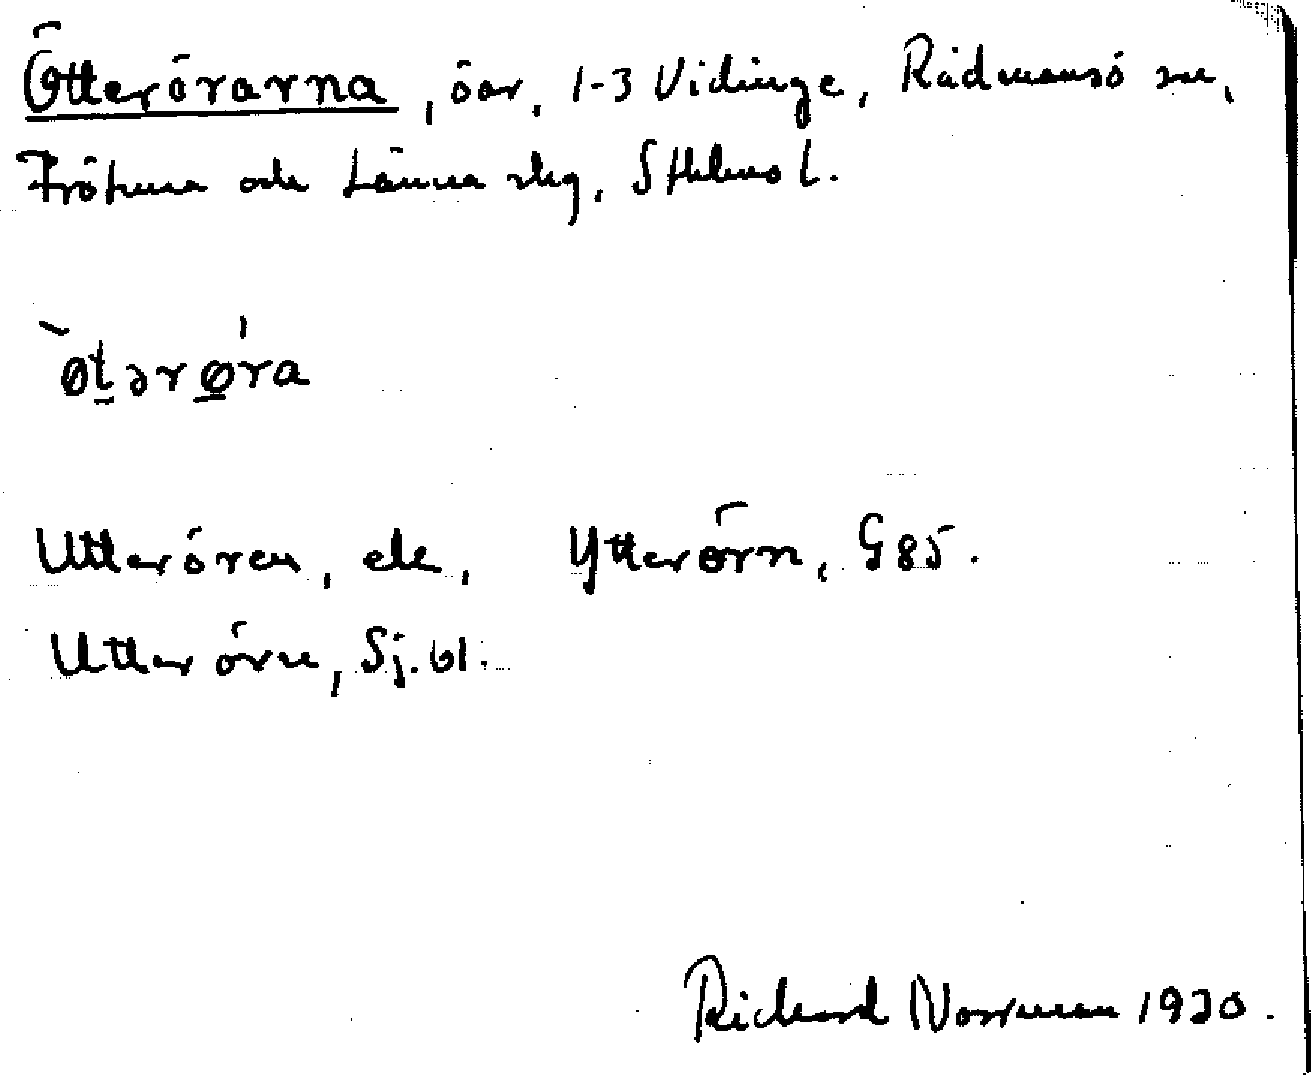 Ötterörarna, öar, 1-3 Vidinge, Rådmansö sn,
Frötuna och Länna skg, Sthlms l.
`øt̲ər ǿ̲ra
Utterören, ek, Ytterörn, G85.
Utterörn, Sj.bl.
Richard Norrman 1930.